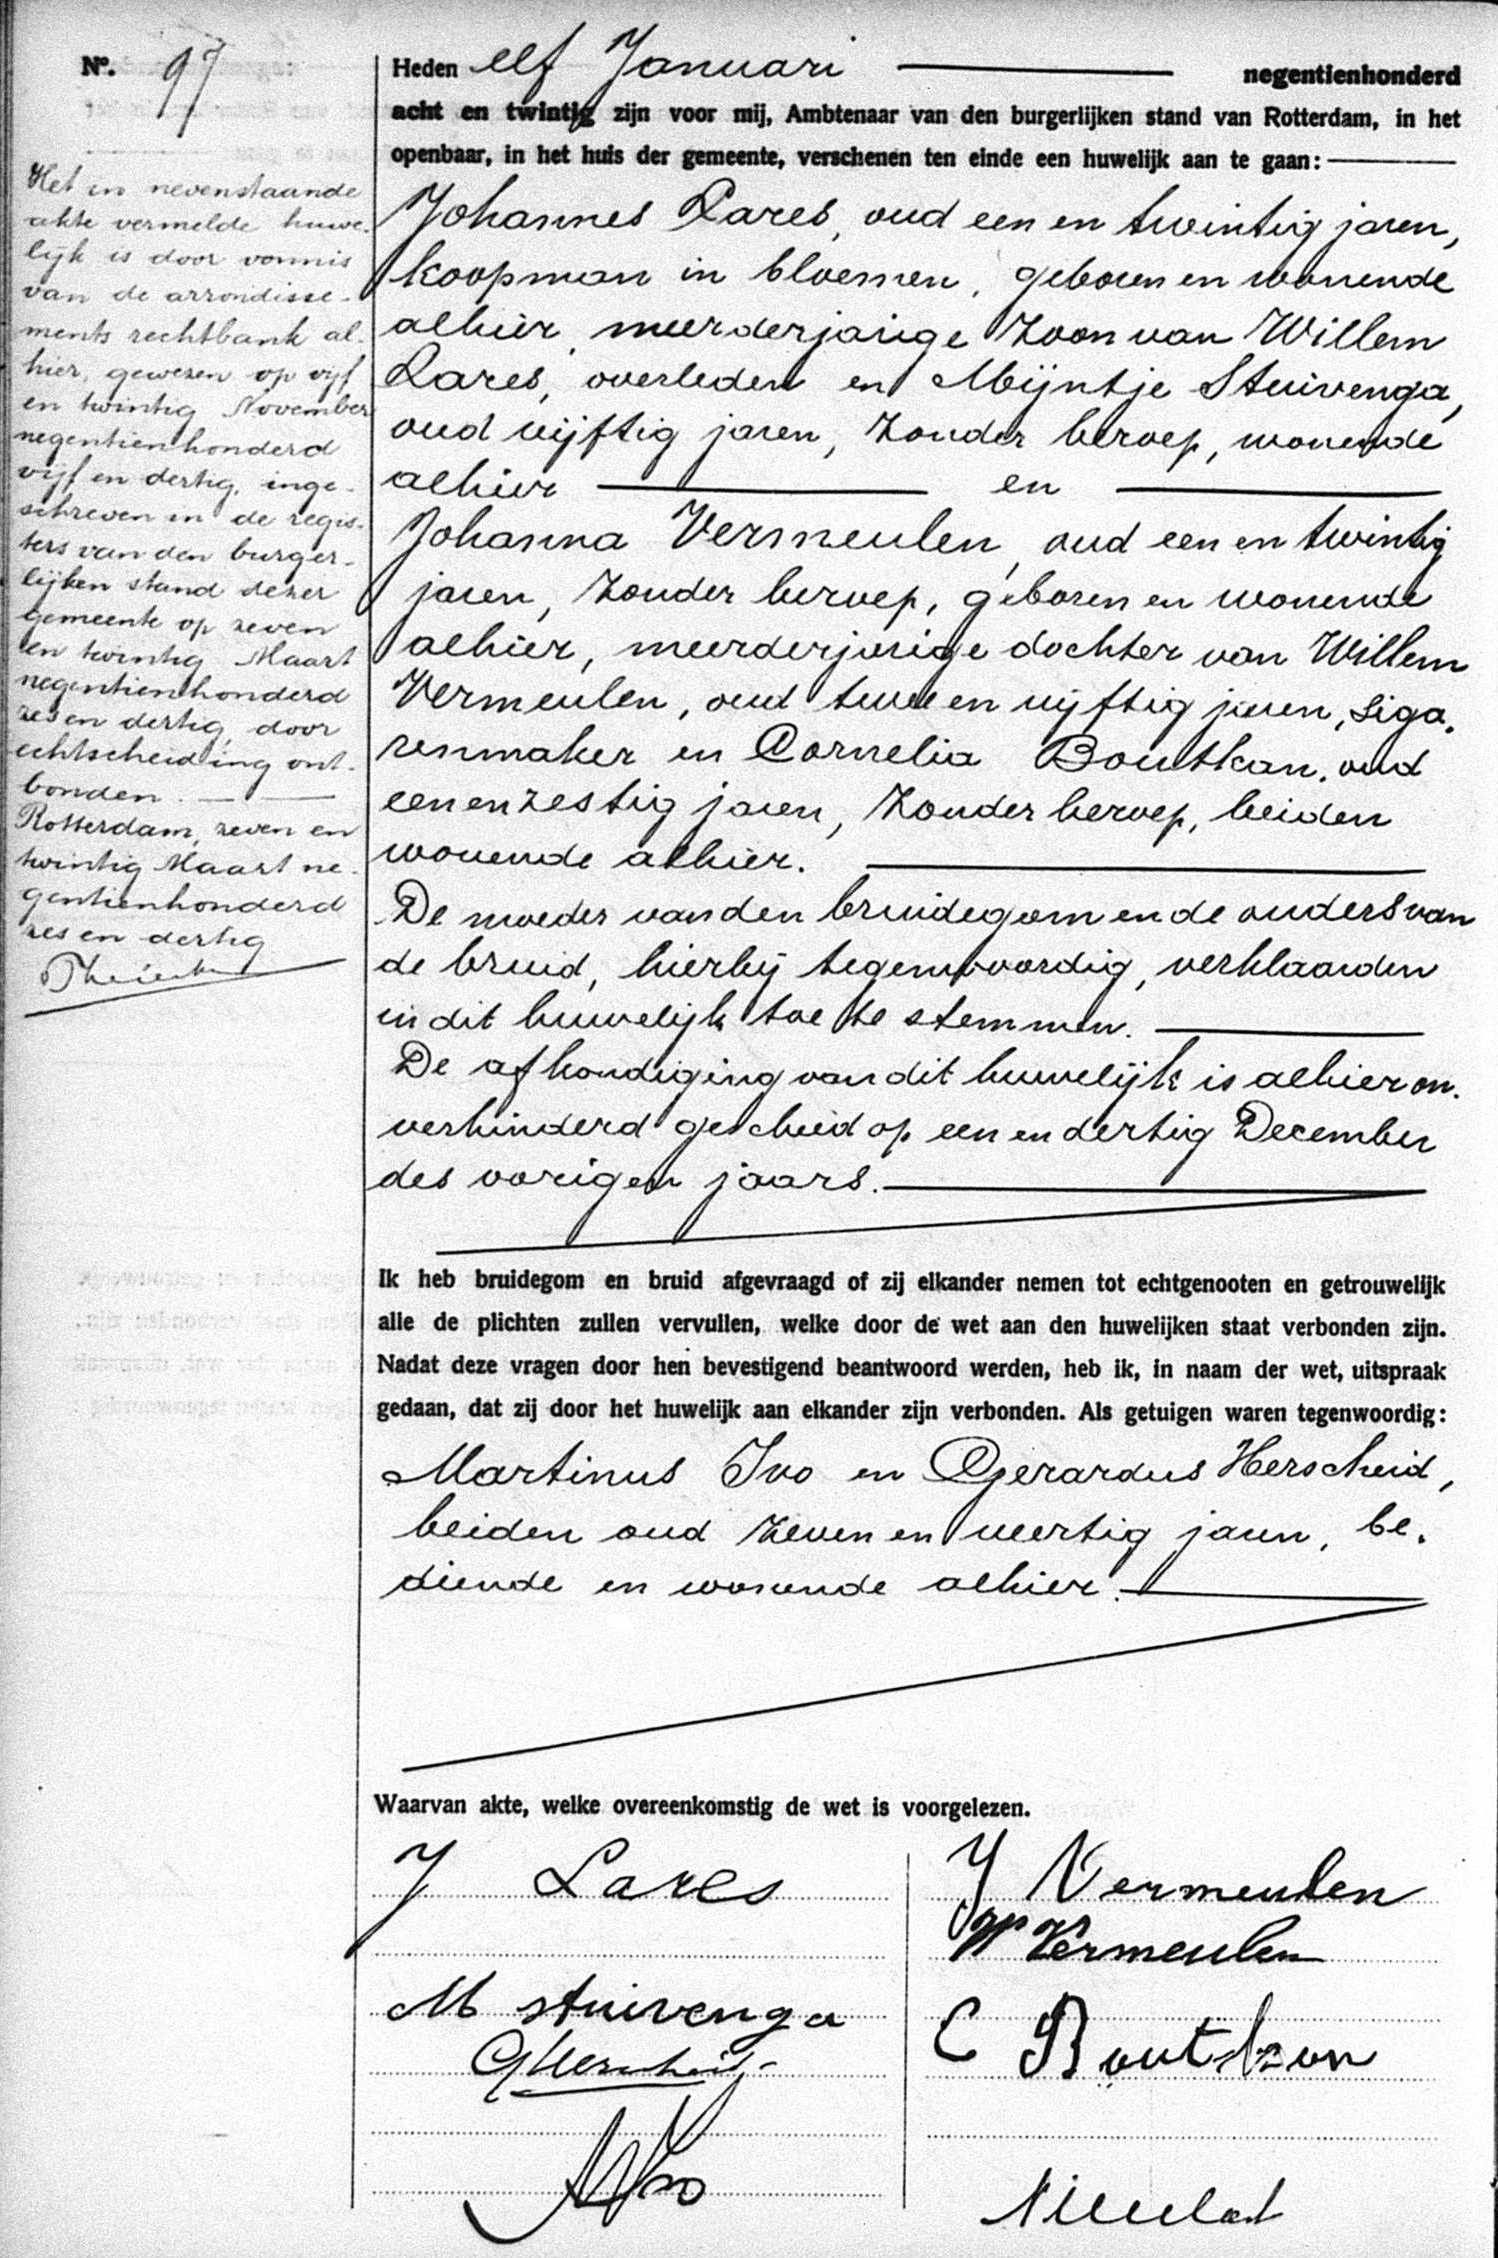 Nº. 97
Het in nevenstaande
akte vermelde huwe-
lijk is door vonnis
van de arrondisse-
ments rechtbank al-
hier, gewezen op vijf
en twintig November
negentienhonderd
vijf en dertig, inge-
schreven in de regis-
ters van den burger-
lijken stand dezer
gemeente op zeven
en twintig Maart
negentienhonderd
zes en dertig, door
echtscheiding ont-
bonden.
Rotterdam, zeven en
twintig Maart ne-
gentienhonderd
zes en dertig
Heden elf Januari negentienhonderd
acht en twintig zijn voor mij, Ambtenaar van den burgerlijken stand van Rotterdam, in het
openbaar, in het huis der gemeente, verschenen ten einde een huwelijk aan te gaan:
Johannes Lares, oud een en twintig jaren,
koopman in bloemen, geboren en wonende
alhier, meerderjarige zoon van Willem
Lares, overleden en Mijntje Stuivenga,
oud vijftig jaren, zonder beroep, wonende
alhier en
Johanna Vermeulen, oud een en twintig
jaren, zonder beroep, geboren en wonende
alhier, meerderjarige dochter van Willem
Vermeulen, oud twee en vijftig jaren, siga-
renmaker en Cornelia Boutkan, oud
een en zestig jaren, zonder beroep, beiden
wonende alhier.
De moeder van den bruidegom en de ouders van
de bruid, hierbij tegenwoordig, verklaarden
in dit huwelijk toe te stemmen.
De afkondiging van dit huwelijk is alhier on-
verhinderd geschied op een en dertig December
des vorigen jaars.
Ik heb bruidegom en bruid afgevraagd of zij elkander nemen tot echtgenooten en getrouwelijk
alle de plichten zullen vervullen, welke door de wet aan den huwelijken staat verbonden zijn.
Nadat deze vragen door hen bevestigend beantwoord werden, heb ik, in naam der wet, uitspraak
gedaan, dat zij door het huwelijk aan elkander zijn verbonden. Als getuigen waren tegenwoordig:
Martinus Ivo en Gerardus Herscheid,
beiden oud zeven en veertig jaren, be-
diende en wonende alhier.
Waarvan akte, welke overeenkomstig de wet is voorgelezen.
J Lares
J Vermeulen
W Vermeulen
M stuivenga
C Boutkan
G Herscheid
MIvo